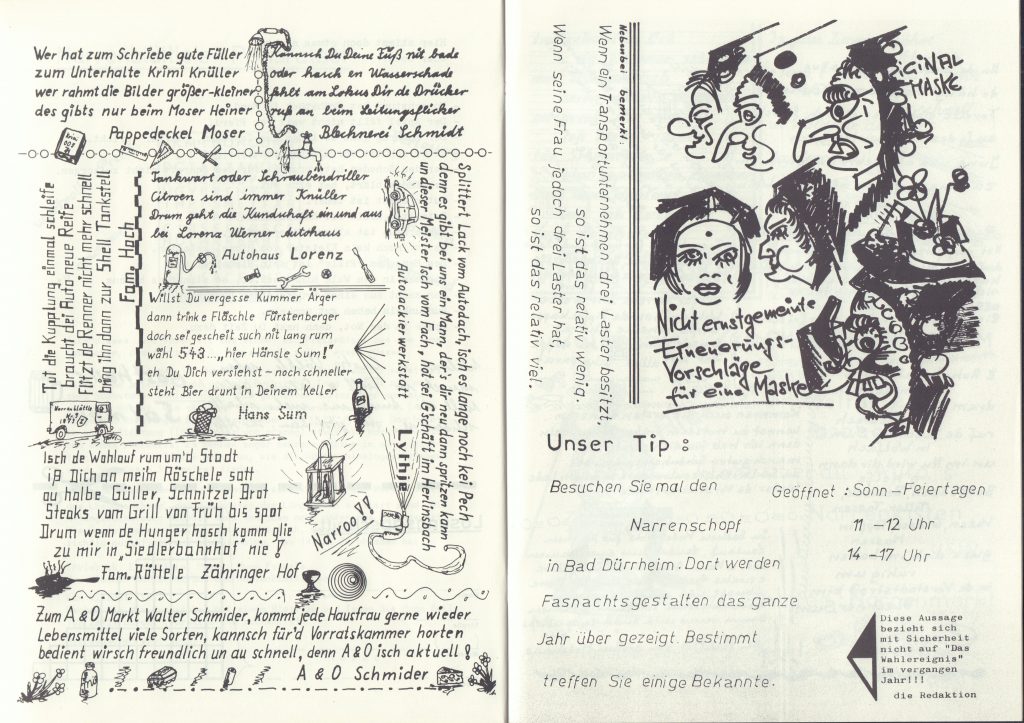 Wer hat zum Schriebe gute Füller
zum Unterhalte Krimi Knüller
wer rahmt die Bilder größer-kleiner
des gibts nur beim Moser Heiner
Pappedeckel Moser
Kannsch Du Deine Füß nit bade
oder hasch en Wasserschade
fehlt am Lokus Dir de Drücker
ruf an beim Leitungsflicker
Blechnerei Schmidt
Tut die Kupplung einmal schleife
braucht dei Auto neue Reife
Flitzt de Renner nicht mehr schnell
bring ihn dann zur Shell Tankstell
Fam. Hoch
Tankwart oder Schraubendriller
Citroen sind immer Knüller
Drum geht die Kundschaft ein und aus
bei Lorenz Werner Autohaus
Autohaus Lorenz
Willst Du vergesse Kummer Ärger
dann trinke Fläschle Fürstenberger
doch sei gescheit such nit lang rum
wähl 543... „hier Hänsle Sum!"
eh Du Dich versiehst – noch schneller
steht Bier drunt in Deinem Keller
Hans Sum
Splittert Lack vom Autodach, isch es lange noch kei Pech
denn es gibt bei uns ein Mann, der's dir neu dann spritzen kann
un dieser Meister isch vom Fach, hat sei G'schäft im Herlinsbach
Autolackierwerkstatt
Lythje
Narrenblättle
Isch de Wahlauf rum um'd Stadt
iß Dich an meim Röschele satt
au halbe Güller, Schnitzel Brot
Steaks vom Grill von früh bis spot
Drum wenn de Hunger hosch komm glie
zu mir in „Siedlerbahnhof" nie!
Fam. Röttele Zähringer Hof
Narroo!!
Zum A & O Markt Walter Schmider, kommt jede Hausfrau gerne wieder
Lebensmittel viele Sorten, kannsch für'd Vorratskammer horten
bedient wirsch freundlich un au schnell, denn A & O isch aktuell!
A & O Schmider
Nebenbei bemerkt.
Wenn ein Transportunternehmen drei Laster besitzt,
so ist das relativ wenig.
Wenn seine Frau jedoch drei Laster hat,
so ist das relativ viel.
ORIGINAL
MASKE
Nicht ernstgemeinte
Erneuerungs-
Vorschläge
für eine Maske
Unser Tip :
Besuchen Sie mal den
Narrenschopf
in Bad Dürrheim. Dort werden
Fasnachtsgestalten das ganze
Jahr über gezeigt. Bestimmt
treffen Sie einige Bekannte.
Geöffnet : Sonn – Feiertagen
11 – 12 Uhr
14 – 17 Uhr
Diese Aussage
bezieht sich
mit Sicherheit
nicht auf "Das
Wahlereignis"
im vergangen
Jahr!!!
die Redaktion